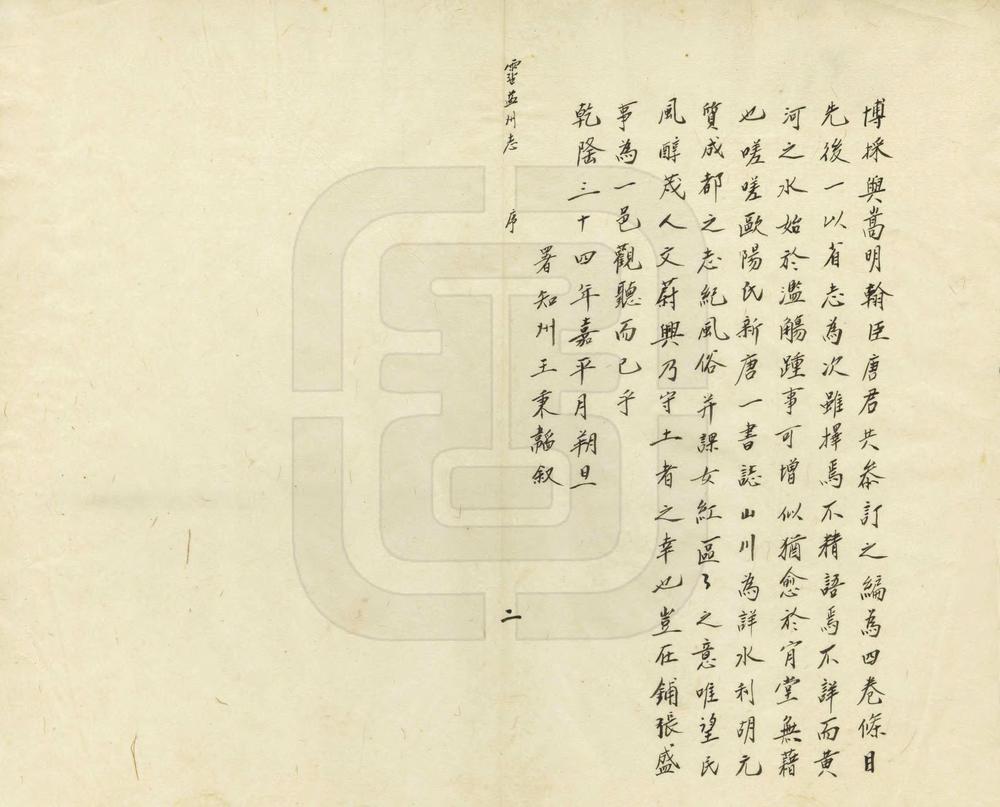 博採與嵩明翰臣唐君共叅訂之編為四卷條目
先後一以省志為次雖擇焉不精語焉不詳而黄
河之水始於濫觴踵事可增似猶愈於肯堂無藉
也嗟嗟歐陽氏新唐一書誌山川為詳水利胡元
質成都之志紀風俗并課女紅區々之意唯望民
風醇茂人文蔚興乃守土者之幸也豈在鋪張盛
事為一邑觀聽而已乎
乾隆三十四年嘉平月朔旦
署知州王秉韜叙
霑益州志 序 二